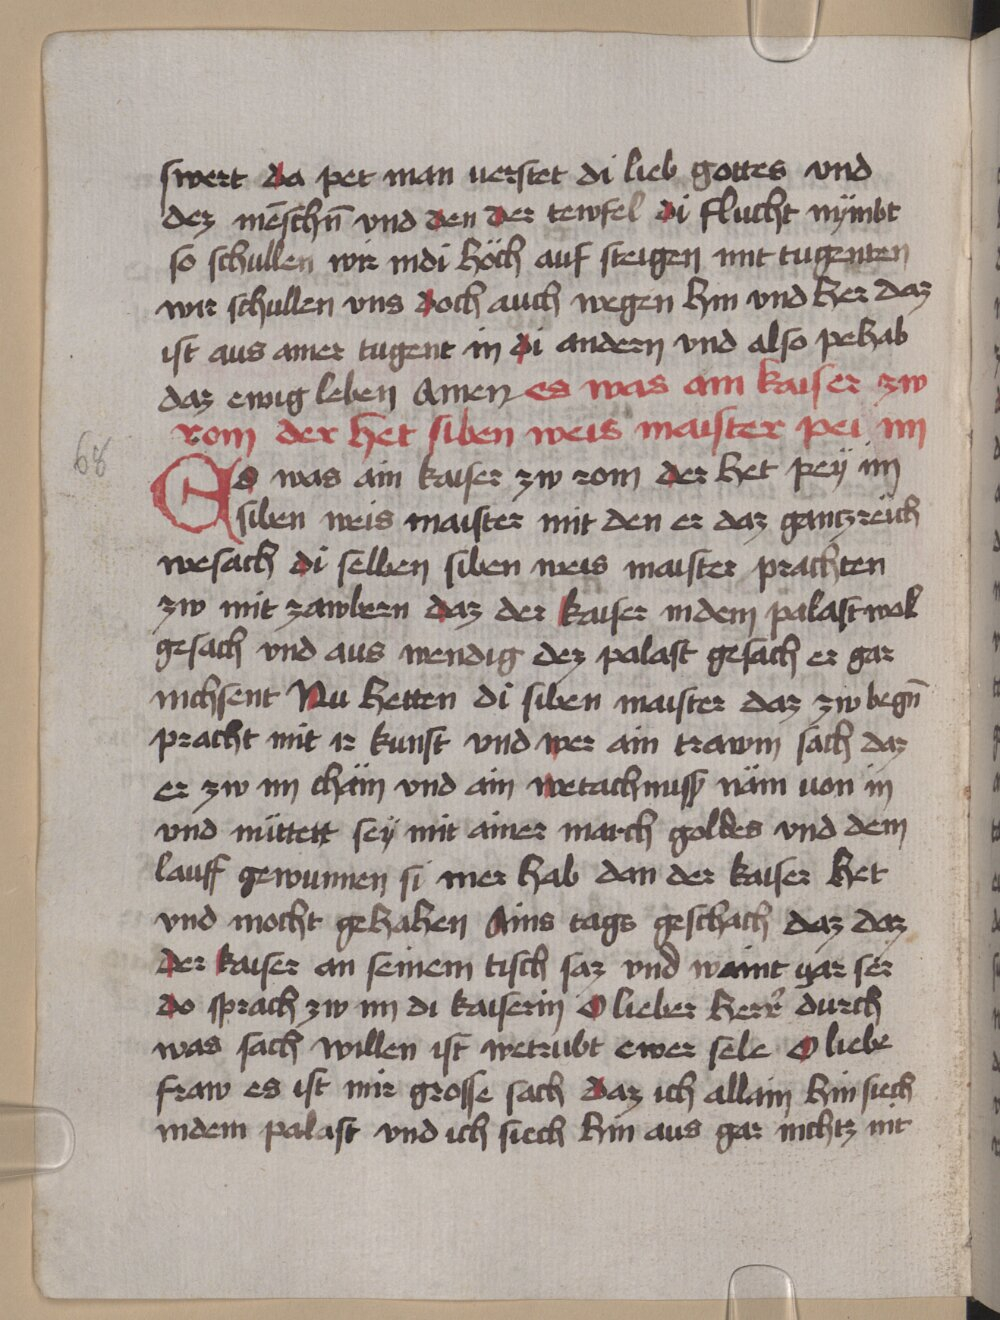 swert da pet man verstet di lieb gottes vnd
dez mēschn̄ vnd den der tewfel di flucht nÿmbt
so schullen wir indi höch auf steigen mit tugenten
wir schullen vns doch auch wegen hin vnd her daz
ist aus ainer tugent in di andern vnd also pehab
daz ewig leben Amen es was ain kaiser zw
rom der het siben weis maister pei im
68
Es was ain kaiser zw rom der het peÿ im
siben weis maister mit den er daz gantz reich
wesach di selben siben weis maister prachten
zw mit zawbern daz der kaiser indem palast wol
gesach vnd aus wendig dez palast gesach er gar
nichsent Nu hetten di siben maister daz zw begn̄
pracht mit ir kunst vnd wer ain trawm sach daz
er zw im chäm vnd ain näm von in
vnd müttett seÿ mit ainer march goldes vnd dem
lauff gewunnen si mer hab dan der kaiser het
vnd mocht gehaben Ains tags geschach daz daz
der kaiser an seinem tisch saz vnd waint gar ser
do sprach zw im di kaiserin O lieber herr durch
was sach willen ist wetrubt ewer sele O liebe
fraw es ist mir grosse sach daz ich allain hin siech
indem palast vnd ich siech hin aus gar nichtz nit